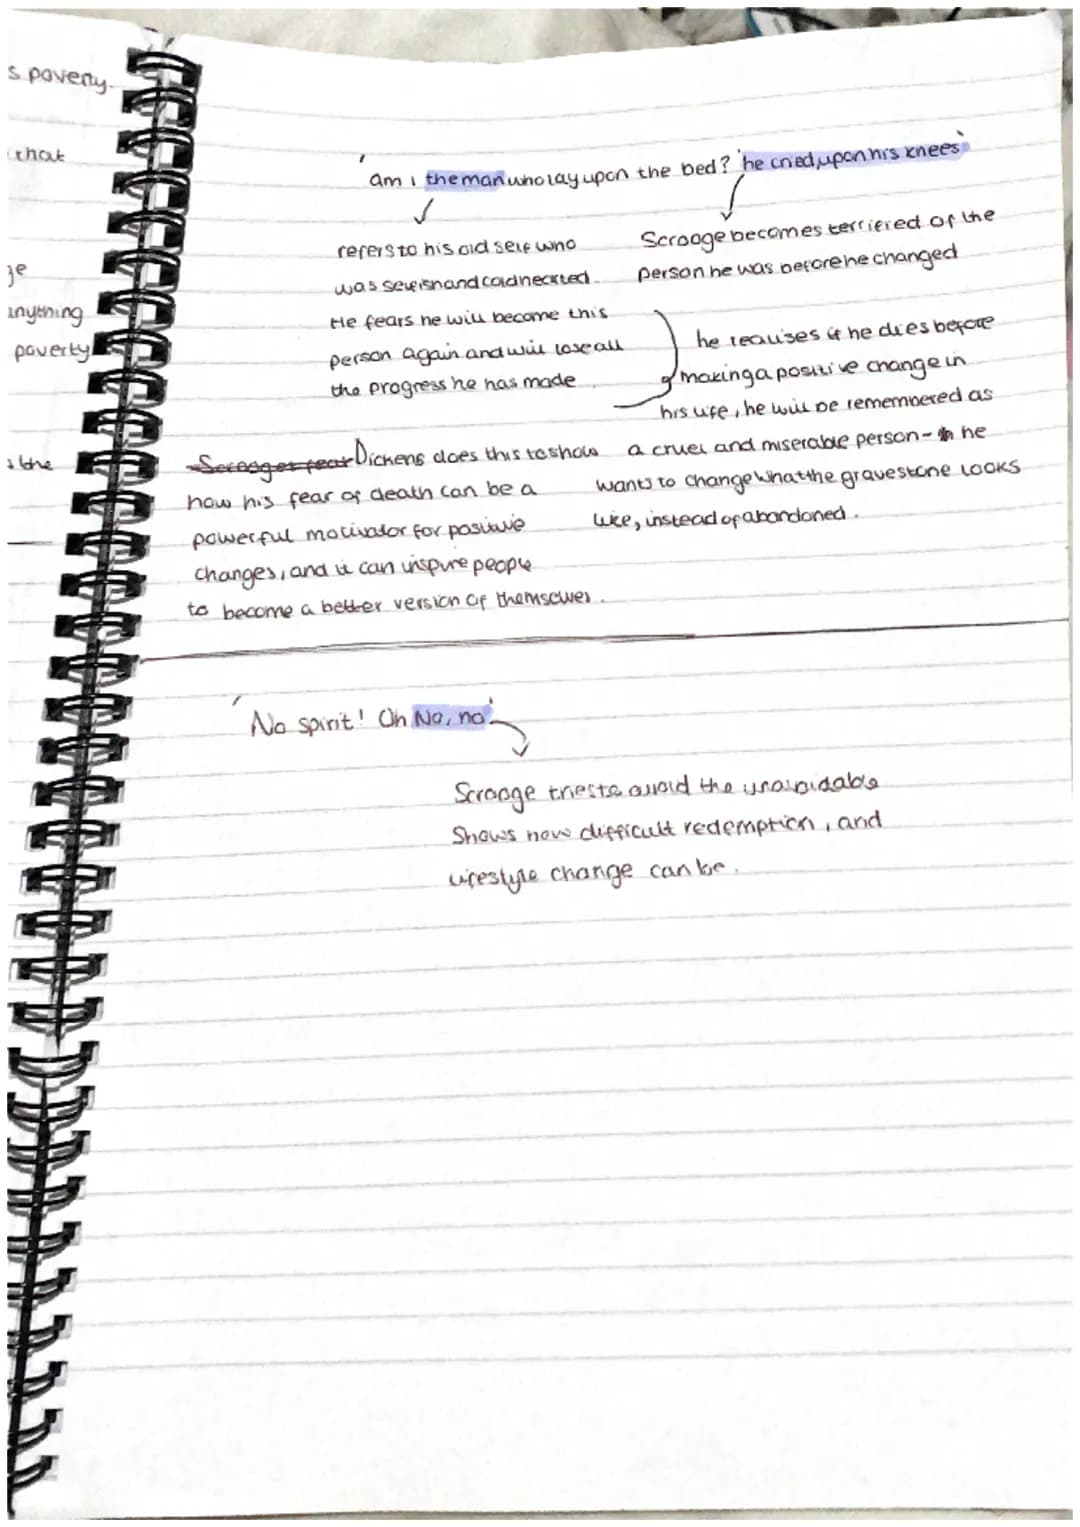 s poverty.
that
ge
anything
poverty
s the
'am i the man who lay upon the bed?' he cried, upon his knees'
refers to his old self who
was selfish and coldhearted.
He fears he will become this
person again and will lose all
the progress he has made.
Scrooge becomes terrified of the
person he was before he changed
he realises if he dies before
making a positive change in
his life, he will be remembered as
a cruel and miserable person- he
wants to change what the gravestone looks
like, instead of abandoned.
Scrooges fear Dickens does this to show
how his fear of death can be a
powerful motivator for positive
changes, and it can inspire people
to become a better version of themselves.
'No spirit! Oh No, no'
Scrooge tries to avoid the unavoidable
Shows how difficult redemption, and
lifestyle change can be.